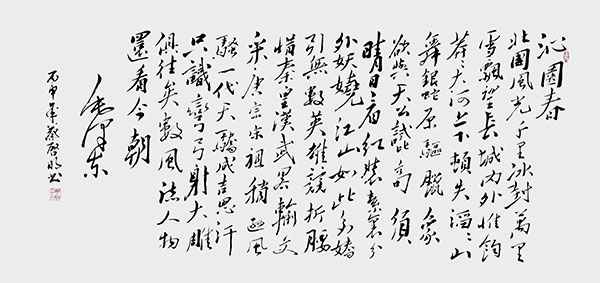 沁園春
北國風光千里冰封萬里
雪飄望長城內外惟餘
莽々大河上下頓失滔々山
舞銀蛇原驅臘象
欲與天公試比高須
晴日看紅裝素裹分
外妖嬈江山如此多嬌
引無數英雄競折腰
惜秦皇漢武略輸文
采唐宗宋祖稍遜風
騷一代天驕成吉思汗
只識彎弓射大雕
俱往矣數風流人物
還看今朝
毛澤東
丙申年蔡啓明书